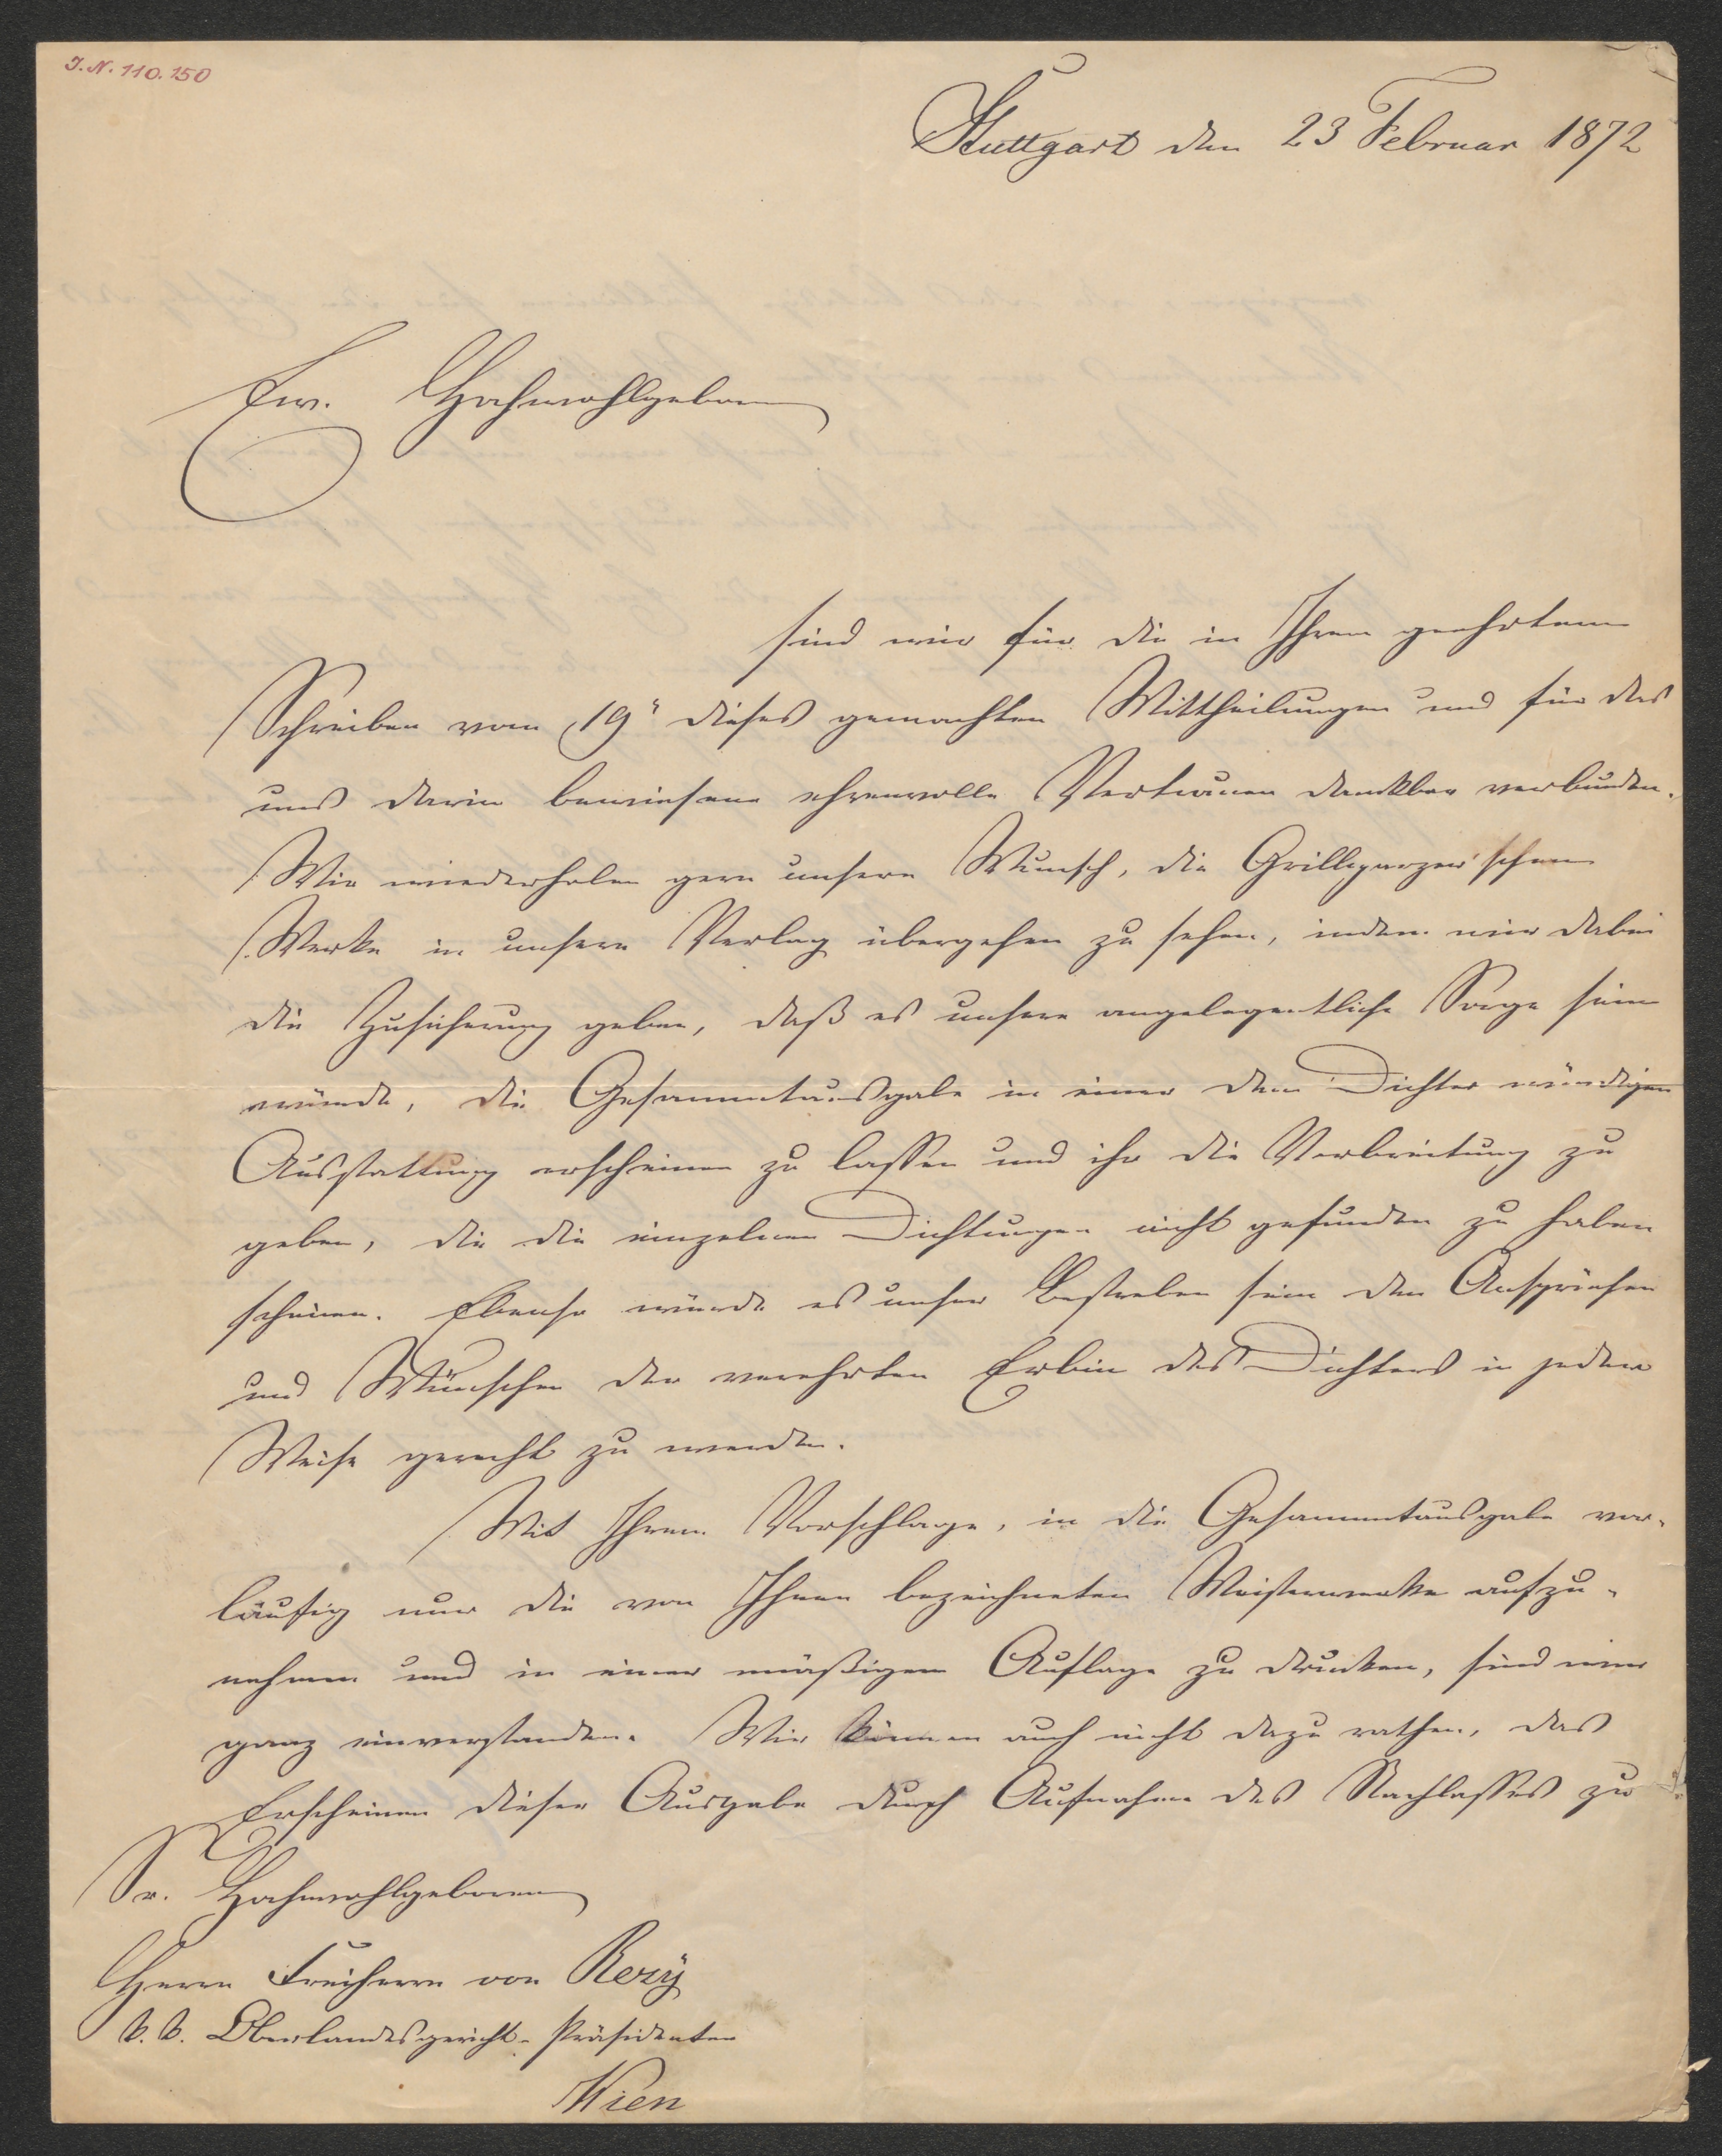 J. N. 110.150
Stuttgart den 23 Februar 1872
Ew. Hochwohlgeboren
sind wir für die in Ihrem geehrten
Schreiben vom 19n dieses gemachten Mittheilungen und für das
uns darin bewiesene ehrenvolle Vertrauen dankbar verbunden.
Wir wiederholen gern unsern Wunsch, die Grillparzer'schen
Werke in unsern Verlag übergehen zu sehen, indem wir dabei
die Zusicherung geben, daß es unsere angelegentliche Sorge sein
würde, die Gesammtausgabe in einer dem Dichter würdigen
Ausstattung erscheinen zu lassen und ihr die Verbreitung zu
geben, die die einzelnen Dichtungen nicht gefunden zu haben
scheinen. Ebenso würde es unser Bestreben sein den Ansprüchen
und Wünschen der verehrten Erbin des Dichters in jeder
Weise gerecht zu werden.
Mit Ihrem Vorschlage, in die Gesammtausgabe vor-
läufig nur die von Ihnen bezeichneten Meisterwerke aufzu-
nehmen und in einer mäßigen Auflage zu drucken, sind wir
ganz einverstanden. Wir können auch nicht dazu rathen, das
Erscheinen dieser Ausgabe durch Aufnahme des Nachlasses zu
Sr. Hochwohlgeboren
Herrn Freiherrn von Rezÿ
k. k. Oberlandesgericht-Präsidenten
Wien